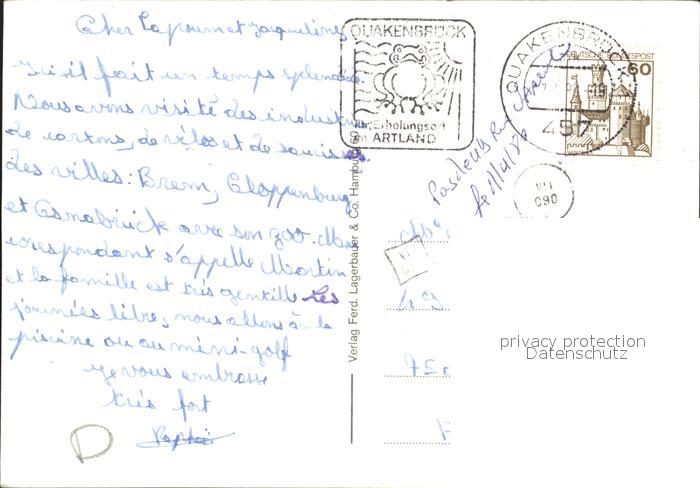 Cher Lapoum et Jaqueline
Ici il fait un temps splendide
Nous avons visité des industries
de cartons, de vélos et de saucisses
des villes: Brem, Cloppenburg
et Osnabrück avec son zoo. Mon
corespondant s'appelle Martin
et la famille est très gentille Les
journées libres, nous allons à la
piscine ou au mini-golf
Je vous embrasse
très fort
D
QUAKENBRÜCK
Erholungsort
ARTLAND
QUAKENBRÜCK
457
DEUTSCHE BUNDESPOST
60
VII
090
Verlag Ferd. Lagerbauer & Co. Hamburg
49
750
privacy protection
Datenschutz